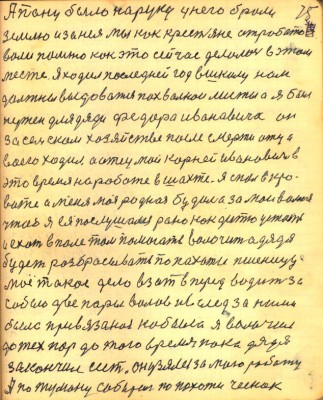 75
А пану было на руку у него брали
землю из за неё мы как крестьяне отработо
вали помню как это сейчас делалось в этом
месте. Я ходил последней год в школу нам
должны выдоватся похвалной листы а я был
нужен для дяди федора ивановича он
за селском хозяйстве после смерти отца
своего ходил а отец мой корней иванович в
это время на работе в шахте. Я спал в кро-
вате а меня моя родная будила за мои волося
чтоб я послушался рано как дитю устать
и ехат в поле там помогать волочит а дядя
будет розбрасывать по пахоти пшеницу
моё такое дело взят в перед водит за
собою две пары волов и в след за ними
была привязаная кобыла я волочил
до тех пор до того время пока дядя
закончил сеят. он узялся за мою работу
А по туману собирал по пахоти чеснок